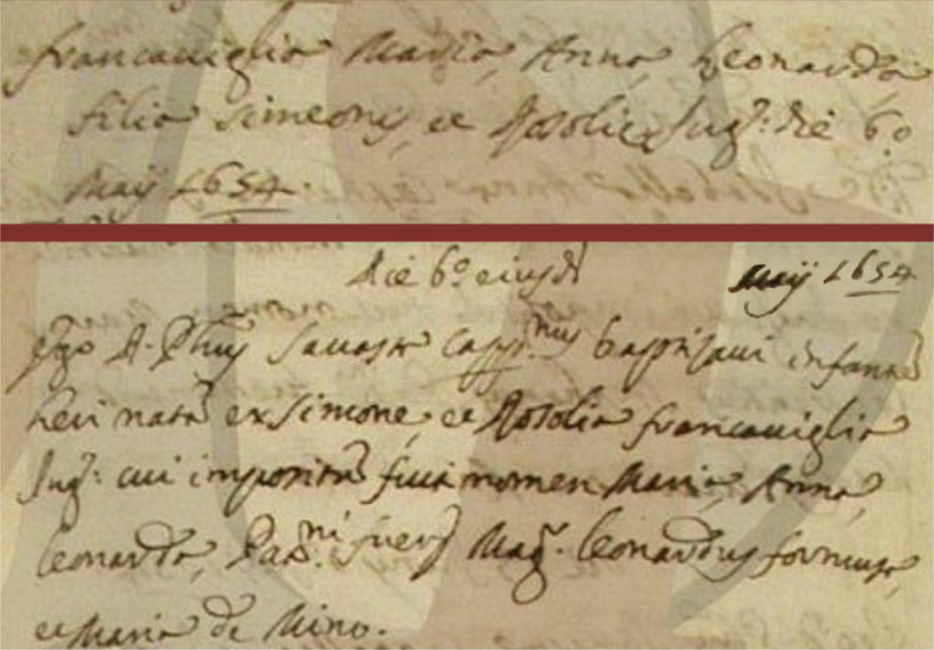 francaviglia Maria, Anna, Leonarda
filia Simeonis, et Rosolie Jug: die 6º
Maij 1654.
die 6º eiusd
Maij 1654
Ego D. baptizavi infante
heri nata ex Simone, et Rosolia francaviglia
Jug: cui impositu fuit nomen Maria, Anna,
Leonarda, Pat.ni fuer Mag. Leonardus
et Maria de Mino.